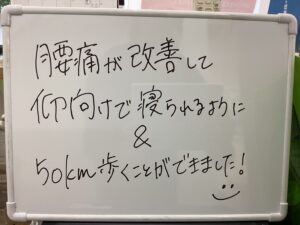 腰痛が改善して
仰向けで寝られるように
&
50km歩くことができました!